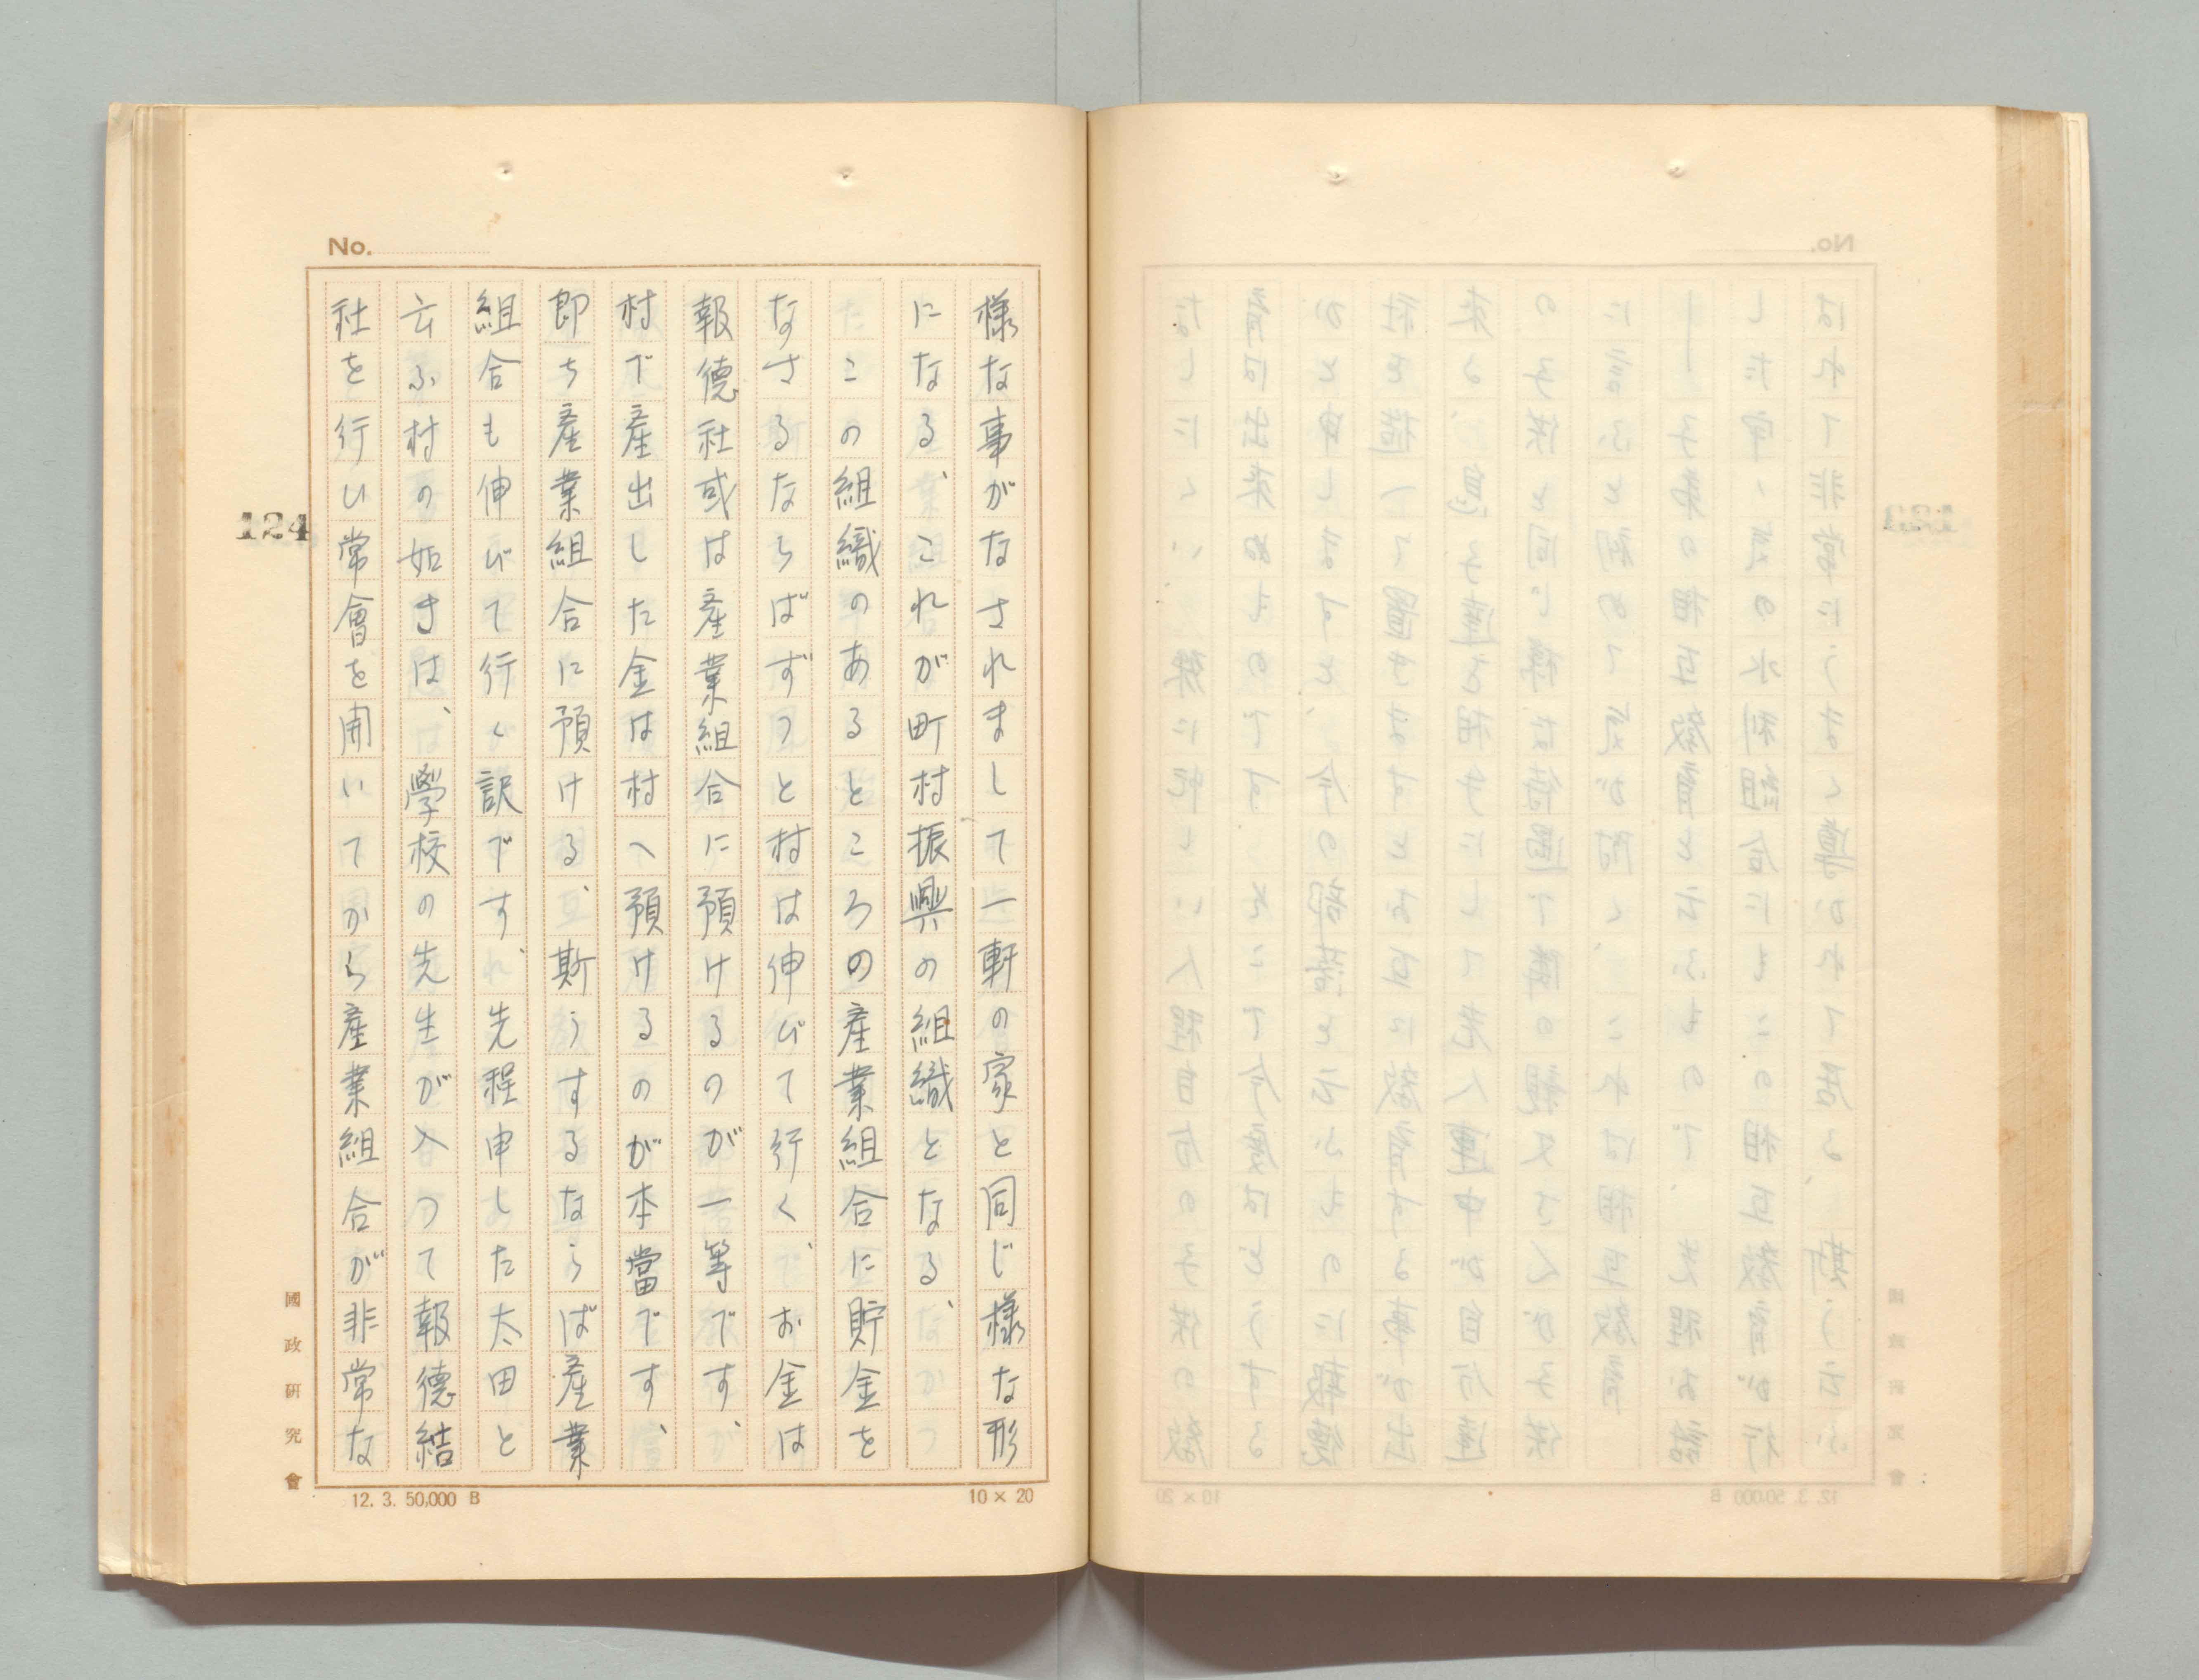 No.
様な事がなされまして一軒の家と同じ様な形
になる、これが町村振興の組織となる、
この組織のあるところの産業組合に貯金を
なさるならばずつと村は伸びて行く、お金は
報德社或は産業組合に預けるのが一等です、
村で産出した金は村へ預けるのが本當です、
即ち産業組合に預ける、斯うするならば産業
組合も伸びて行く訳です、先程申した太田と
云ふ村の如きは、學校の先生が入つて報德結
社を行い常會を開いてから産業組合が非常な
124
國政研究會
12. 3. 50,000 B
10 × 20